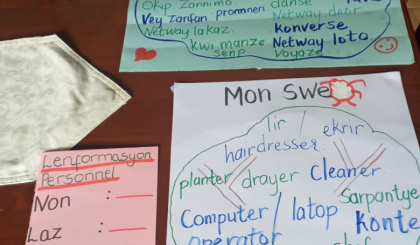 Okip zannimo danse
Vey zanfan promnen Netway deor
Netway lakaz. Konverse
kwi manze Netway loto
senp Voyaze
Mon Swe
lir / ekrir
hairdresser
planter drayer Cleaner
Sarpantye
Computer / latop Konte
operator
Lenformasyon
Personnel
Non :
Laz :